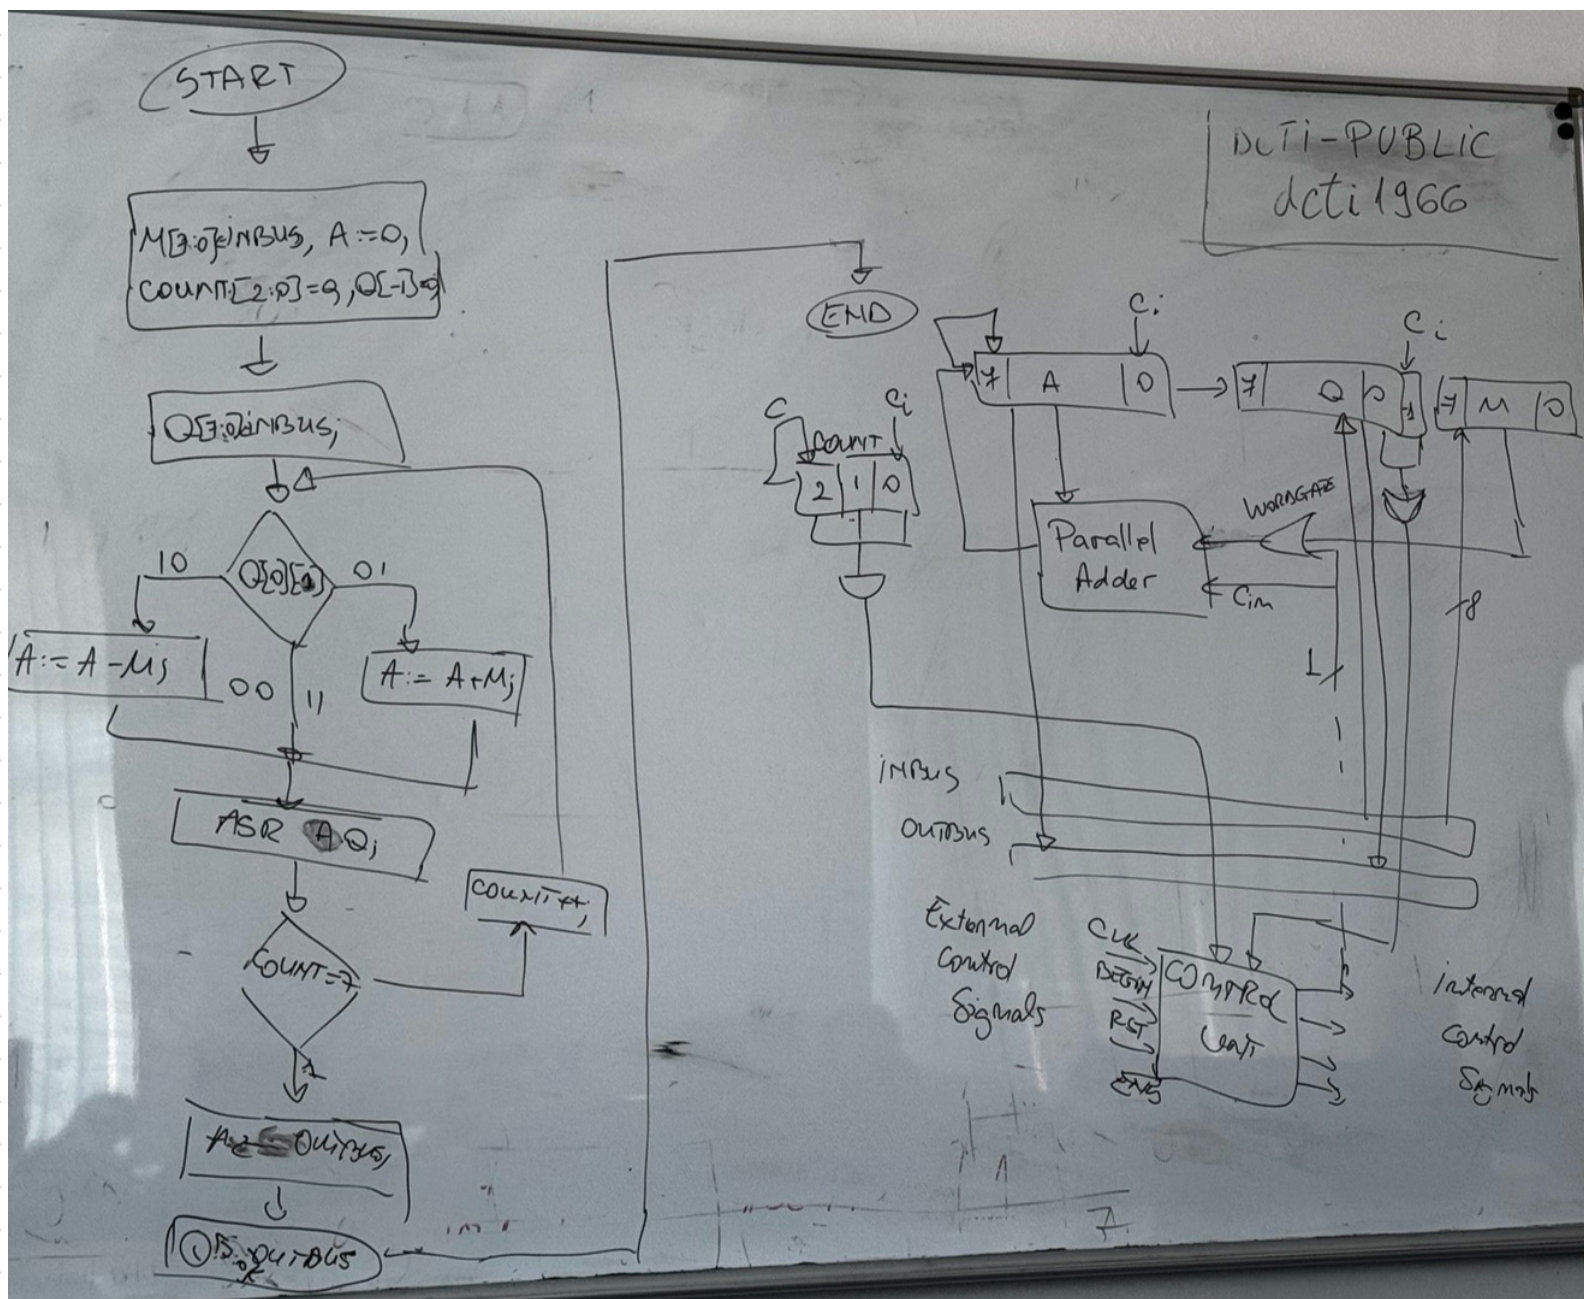 START
M[7:0]:=INBUS, A:=0,
COUNT[2:0]=0, Q[-1]=0
Q[7:0]:=INBUS;
10
01
A:=A-M;
00
11
A:=A+M;
ASR AQ;
COUNT++;
COUNT=7
OUTBUS;
OUTBUS
END
DCTi-PUBLIC
dcti1966
Ci
Ci
7 A 0
7 Q 0 -1
7 M 0
C
Ci
COUNT
2 1 0
WORDGATE
Parallel
Adder
Cin
8
1
INBUS
OUTBUS
External
Control
Signals
CLK
BEGIN
RST
END
CONTROL
Unit
internal
Control
Signals
7